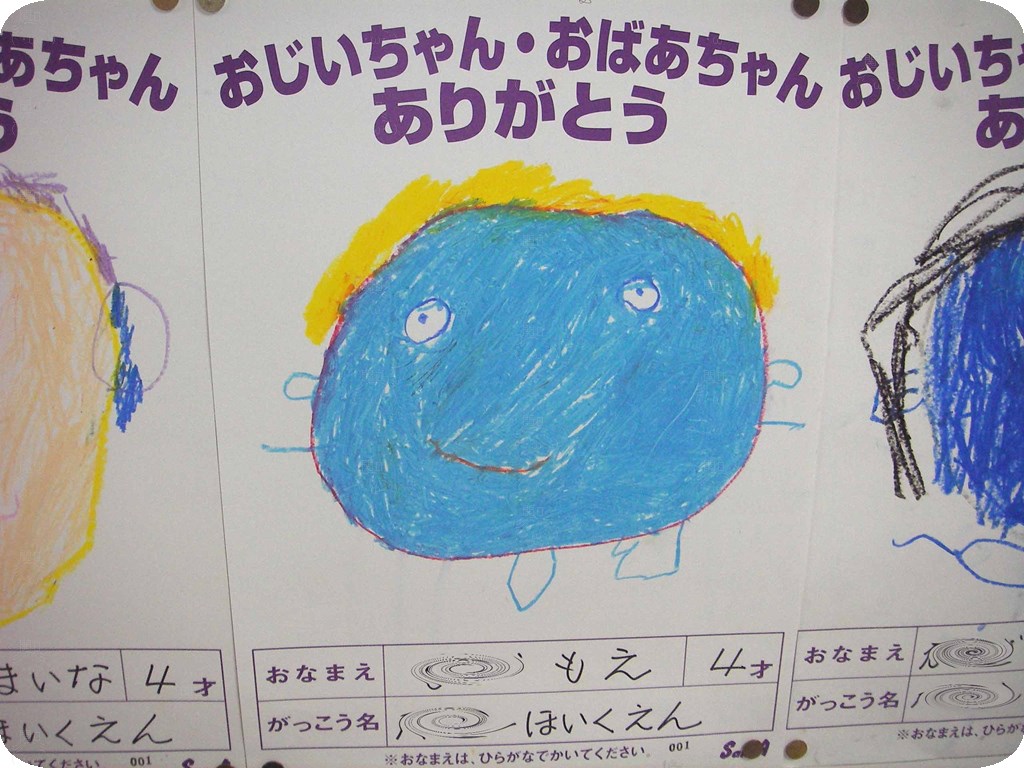 あちゃん
う
まいな 4才
ほいくえん
てください。 001
おじいちゃん・おばあちゃん
ありがとう
おなまえ もえ 4才
がっこう名 ほいくえん
※おなまえは、ひらがなでかいてください。 001
おじいち
あ
おなまえ
がっこう名
※おなまえは、ひらがな